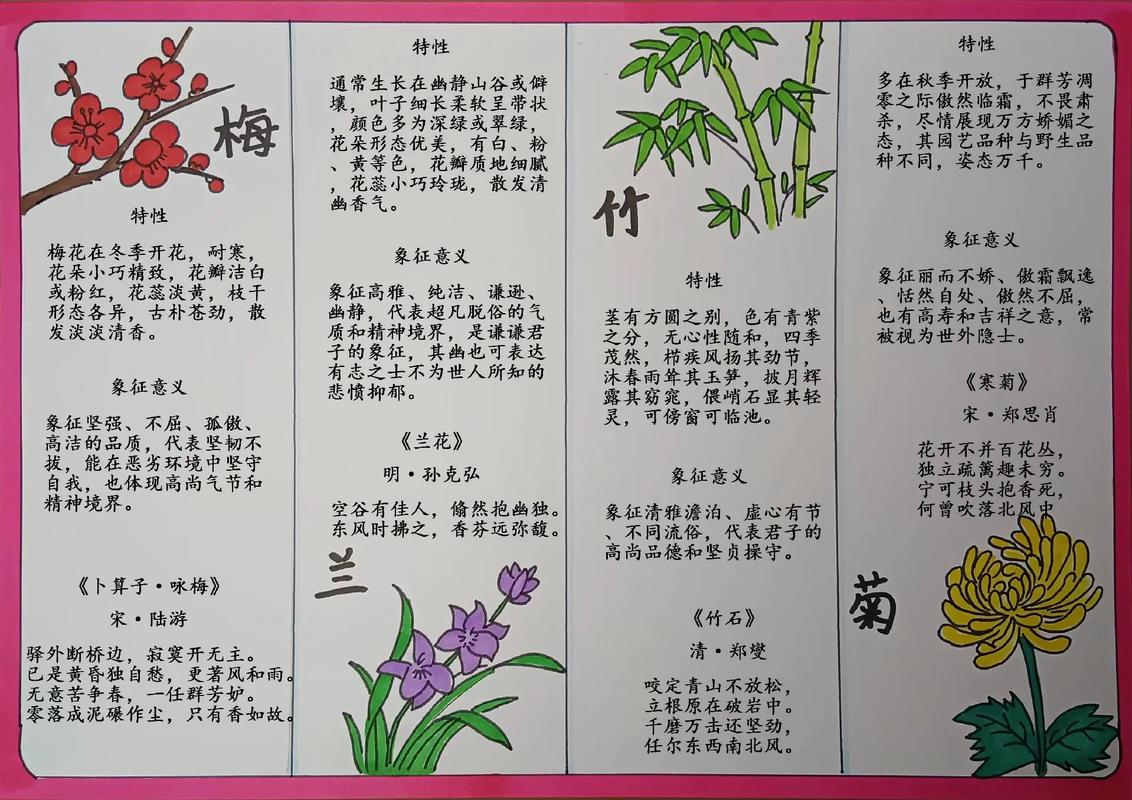 梅
特性
梅花在冬季开花，耐寒，
花朵小巧精致，花瓣洁白
或粉红，花蕊淡黄，枝干
形态各异，古朴苍劲，散
发淡淡清香。
象征意义
象征坚强、不屈、孤傲、
高洁的品质，代表坚韧不
拔，能在恶劣环境中坚守
自我，也体现高尚气节和
精神境界。
《卜算子·咏梅》
宋·陆游
驿外断桥边，寂寞开无主。
已是黄昏独自愁，更著风和雨。
无意苦争春，一任群芳妒。
零落成泥碾作尘，只有香如故。
特性
通常生长在幽静山谷或僻
壤，叶子细长柔软呈带状
，颜色多为深绿或翠绿，
花朵形态优美，有白、粉
、黄等色，花瓣质地细腻
，花蕊小巧玲珑，散发清
幽香气。
象征意义
象征高雅、纯洁、谦逊、
幽静，代表超凡脱俗的气
质和精神境界，是谦谦君
子的象征，其幽也可表达
有志之士不为世人所知的
悲愤抑郁。
《兰花》
明·孙克弘
空谷有佳人，倏然抱幽独。
东风时拂之，香芬远弥馥。
兰
竹
特性
茎有方圆之别，色有青紫
之分，无心性随和，四季
茂然，栉疾风扬其劲节，
沐春雨耸其玉笋，披月辉
露其窈窕，偎峭石显其轻
灵，可傍窗可临池。
象征意义
象征清雅澹泊、虚心有节
、不同流俗，代表君子的
高尚品德和坚贞操守。
《竹石》
清·郑燮
咬定青山不放松，
立根原在破岩中。
千磨万击还坚劲，
任尔东西南北风。
特性
多在秋季开放，于群芳凋
零之际傲然临霜，不畏肃
杀，尽情展现万方娇媚之
态，其园艺品种与野生品
种不同，姿态万千。
象征意义
象征丽而不娇、傲霜飘逸
、恬然自处、傲然不屈，
也有高寿和吉祥之意，常
被视为世外隐士。
《寒菊》
宋·郑思肖
花开不并百花丛，
独立疏篱趣未穷。
宁可枝头抱香死，
何曾吹落北风中
菊